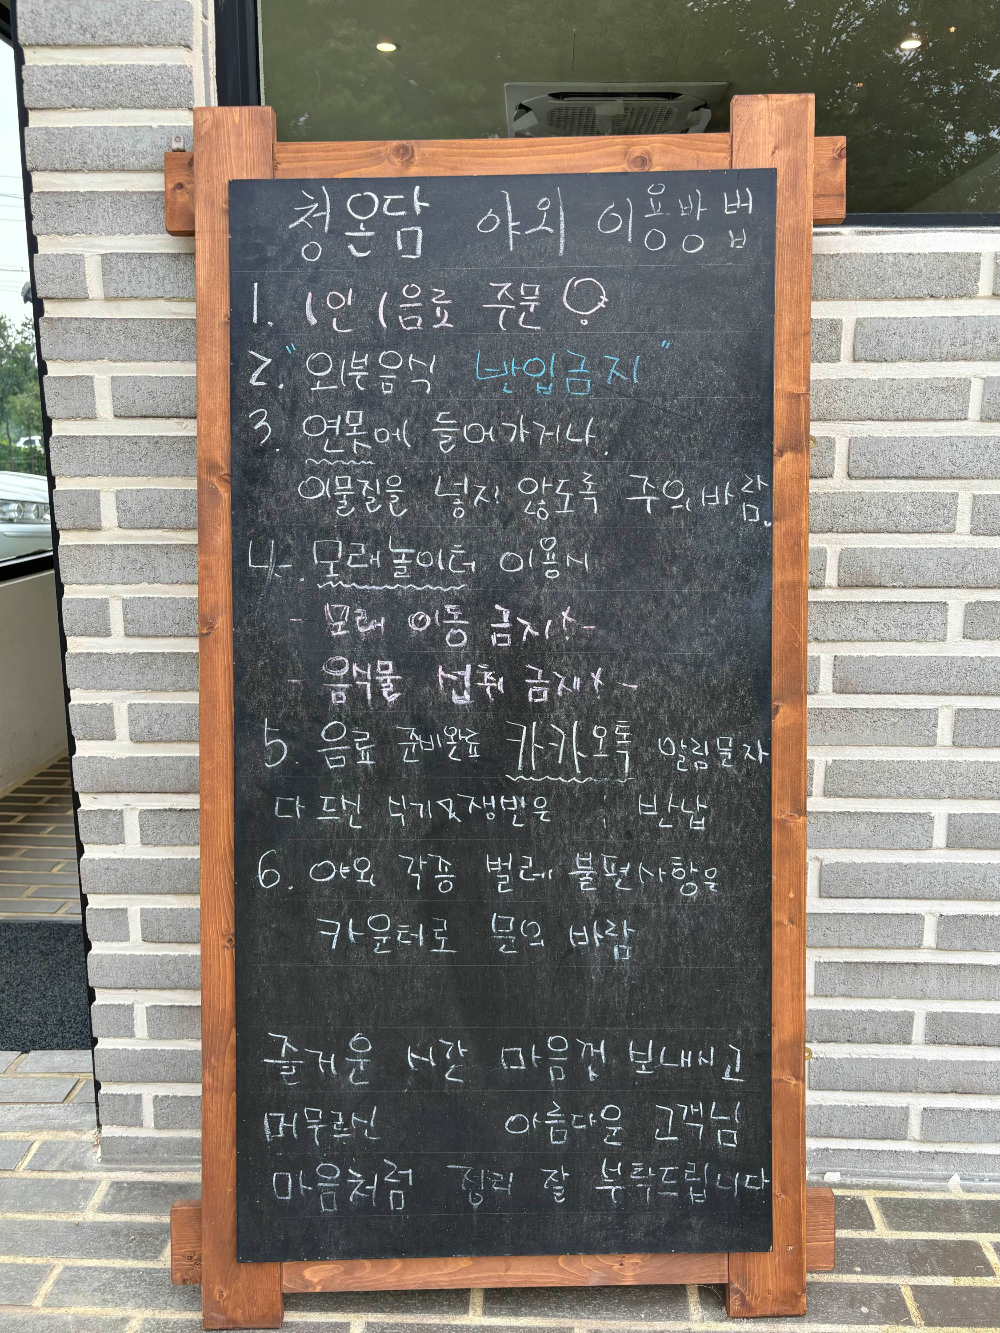 청온담 야외 이용방법
1. 1인 1음료 주문
2. "외부음식 반입금지"
3. 연못에 들어가거나,
이물질을 넣지 않도록 주의바람.
4. 모래놀이터 이용시
- 모래 이동 금지! -
- 음식물 섭취 금지! -
5. 음료 준비완료 카카오톡 알림문자
다 드신 식기및쟁반은 반납
6. 야외 각종 벌레 불편사항은
카운터로 문의 바람
즐거운 시간 마음껏 보내시고
머무르신 아름다운 고객님
마음처럼 정리 잘 부탁드립니다